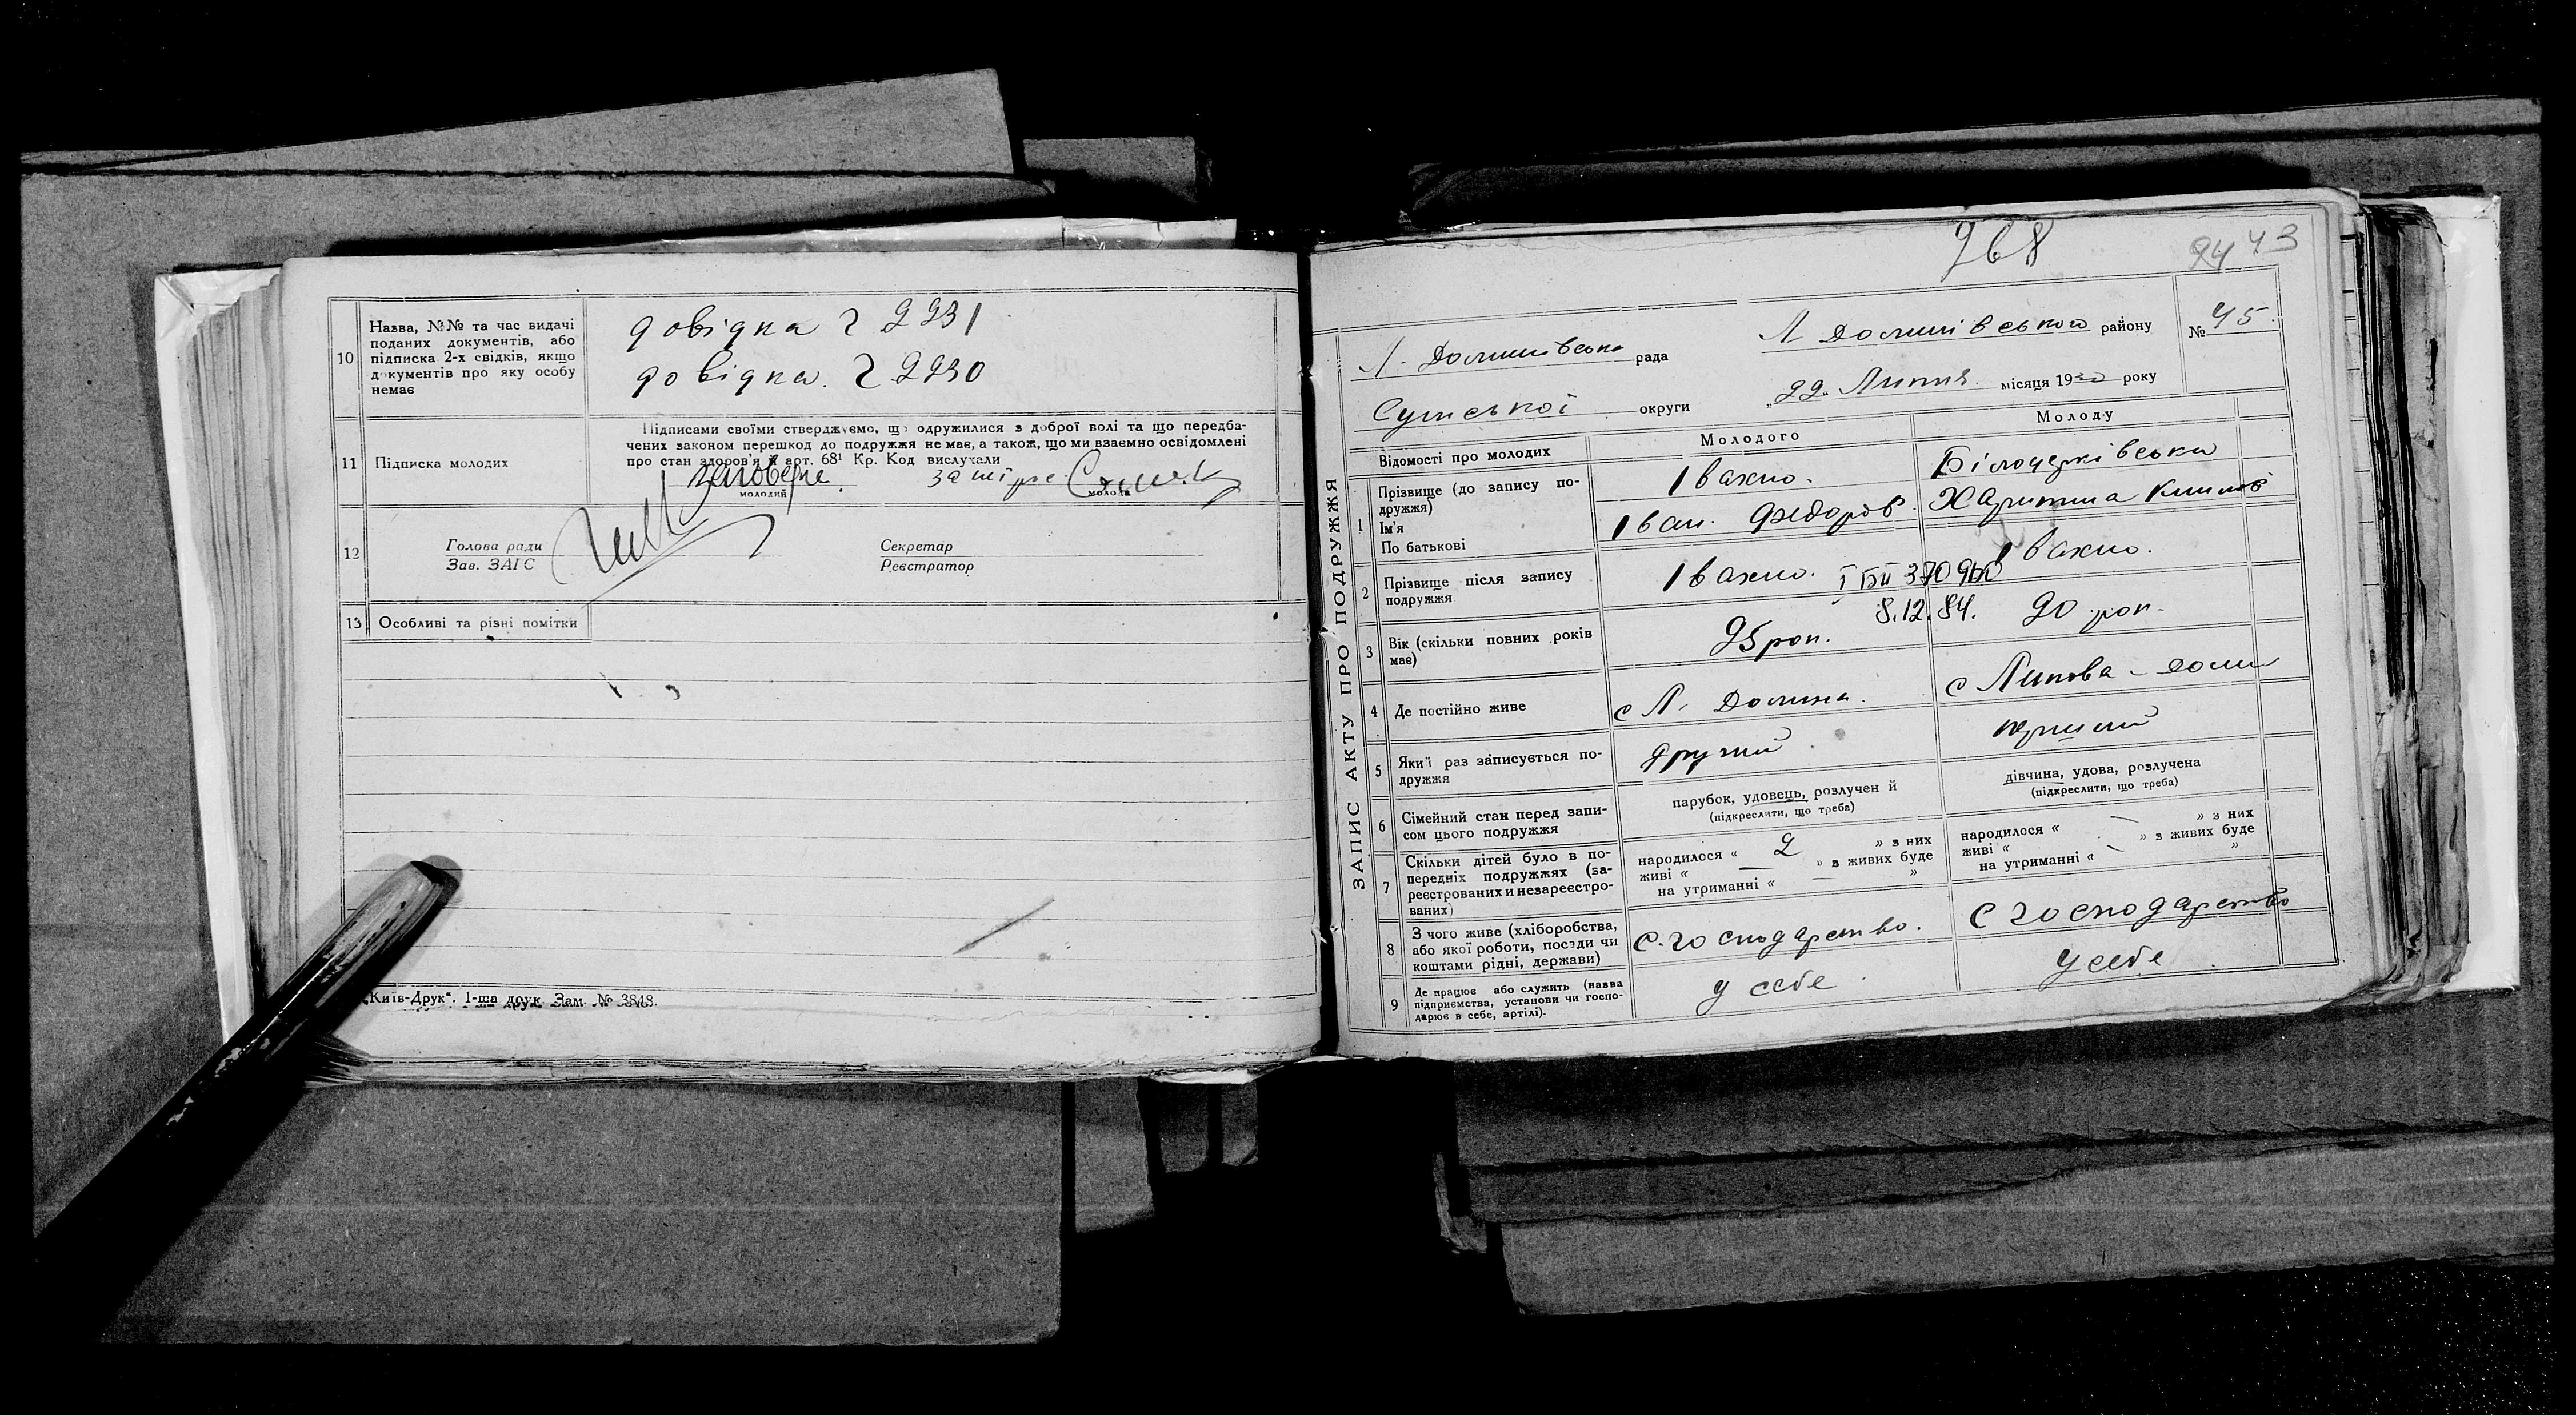 10 Назва, №№ та час видачі
поданих документів, або
підписка 2-х свідків, якщо
документів про яку особу
немає
довідка ч 2231
довідка. ч 2230
11 Підписка молодих
Підписами своїми стверджуємо, що одружилися з доброї волі та що передба-
чених законом перешкод до подружжя не має, а також, що ми взаємно освідомлені
про стан здоров'я й арт. 68¹ Кр. Код вислухали
молодий
молода
12 Голова ради
Зав. ЗАГС
Секретар
Реєстратор
13 Особливі та різні помітки
„Київ-Друк“. 1-ша друк. Зам. № 3848.
968
94 43
ЗАПИС АКТУ ПРО ПОДРУЖЖЯ
Л. Долинівська рада
Л Долинівського району
№ 45.
Сумської округи
„22. Липня. місяця 1930 року
Відомості про молодих
Молодого
Молоду
1 Прізвище (до запису по-
дружжя)
Ім'я
По батькові
Івахно.
Іван. Федоров.
Білоцерківська
Харитина Климов
2 Прізвище після запису
подружжя
Івахно.
Івахно.
8.12.84.
3 Вік (скільки повних років
має)
25 рок.
20 рок.
4 Де постійно живе
с Л. Долина.
с Липова - Доли
5 Який раз записується по-
дружжя
другий
перший
6 Сімейний стан перед запи-
сом цього подружжя
парубок, удовець, розлучений
(підкреслити, що треба)
дівчина, удова, розлучена
(підкреслити, що треба)
7 Скільки дітей було в по-
передніх подружжях (за-
реєстрованих и незареєстро-
ваних)
народилося « 2 » з них
живі « — » з живих буде
на утриманні « — »
народилося « — » з них
живі « — » з живих буде
на утриманні « »
8 З чого живе (хліборобства,
або якої роботи, посади чи
коштами рідні, держави)
с. господарство.
с господарство
9 Де працює або служить (назва
підприємства, установи чи госпо-
дарює в себе, артілі).
у себе
у себе